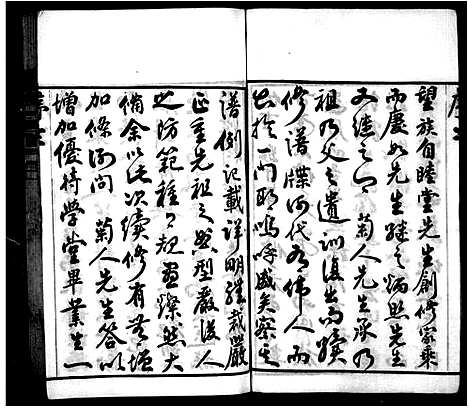 望族自睦堂先生創修家乘
而慶如先生繼之炳然先生
又繼之今菊人先生承乃
祖乃父之遺訓復出而續
修譜牒何代有偉人而
出於一門耶嗚呼盛矣察其
譜例記載詳明體裁嚴
正重先祖之典型嚴後人
之防範種種規畫燦然大
備余以此次續修有無增
加條例問菊人先生答以
增加優待學堂畢業生一